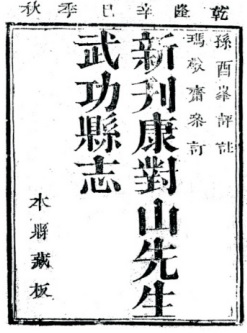 乾隆辛巳季秋
孫酉峯評註
瑪敬齋參訂
新刋康對山先生
武功縣志
本縣藏板